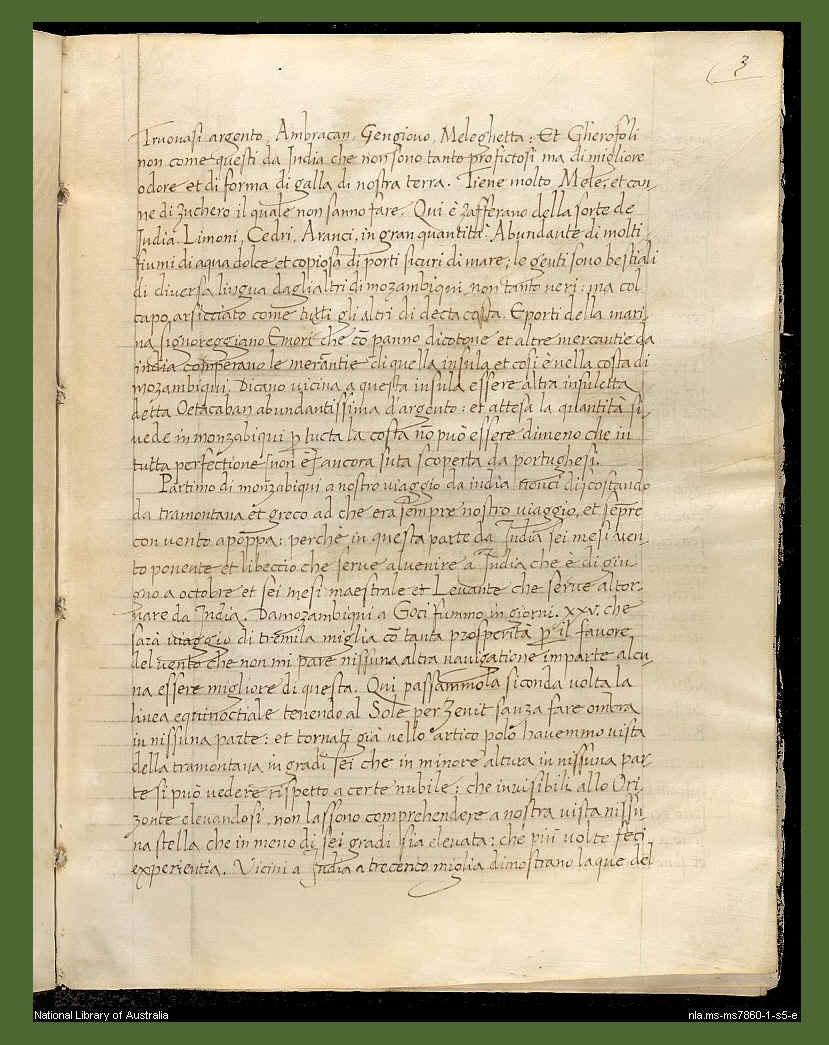 3
Truouasi argento, Ambracan, Gengiouo, Meleghetta: Et Gherofoli
non come questi da India che non sono tanto profictosi ma di migliore
odore et di forma di galla di nostra terra. Tiene molto Mele, et can
ne di zuchero il quale non sanno fare. Qui è zafferano della sorte de
India. Limoni, Cedri, Aranci, in gran quantità. Abundante di molti
fiumi di aqua dolce et copiosa di porti sicuri di mare; le genti sono bestiali
di diuersa lingua dagli altri di mozambiqui, non tanto neri: ma col
capo arsicciato come tutti gli altri di decta costa. E porti della mari
na signoreggiano Emori che cō panno dicotone et altre mercantie da
india comperano le merantie di quella insula et cosi è nella costa di
mozambiqui. Dicano uicina a questa insula essere altra insuletta
detta Oetacaban abundantissima d'argento: et attesa la quantità si
uede in monzabiqui p tucta la costa nō può essere dimeno che in
tutta perfectione [non è] ancora suta scoperta da portughesi.
Partimo di monzabiqui a nostro uiaggio da india discostando
da tramontana et greco ad che era sempre nostro uiaggio, et sēpre
con uento apoppa: perchè in questa parte da India sei mesi uen
to ponente et libeccio che serue a uenire a India che è di giu
gno a octobre et sei mesi maestrale et Leuante che serue al tor
nare da India. Da mozambiqui a Goci fummo in giorni. xxv. che
sarà uiaggio di tremila miglia cō tanta prosperità p il fauore
del uento che non mi pare nissuna altra nauigatione imparte alcu
na essere migliore di questa. Qui passammo la siconda uolta la
linea equinoctiale tenendo al Sole per Zenit sanza fare ombra
in nissuna parte: et tornati già nello artico polo hauemmo uista
della tramontana in gradi sei che in minore altura in nissuna par
te si può uedere rispetto a certe nubile: che inuisibili allo Ori
zonte eleuandosi, non lassono comprehendere a nostra uista nissu
na stella che in meno di sei gradi sia eleuata; che più uolte feci
experientia. Vicini a India a trecento miglia dimostrano laque del
National Library of Australia
nla.ms-ms7860-1-s5-e